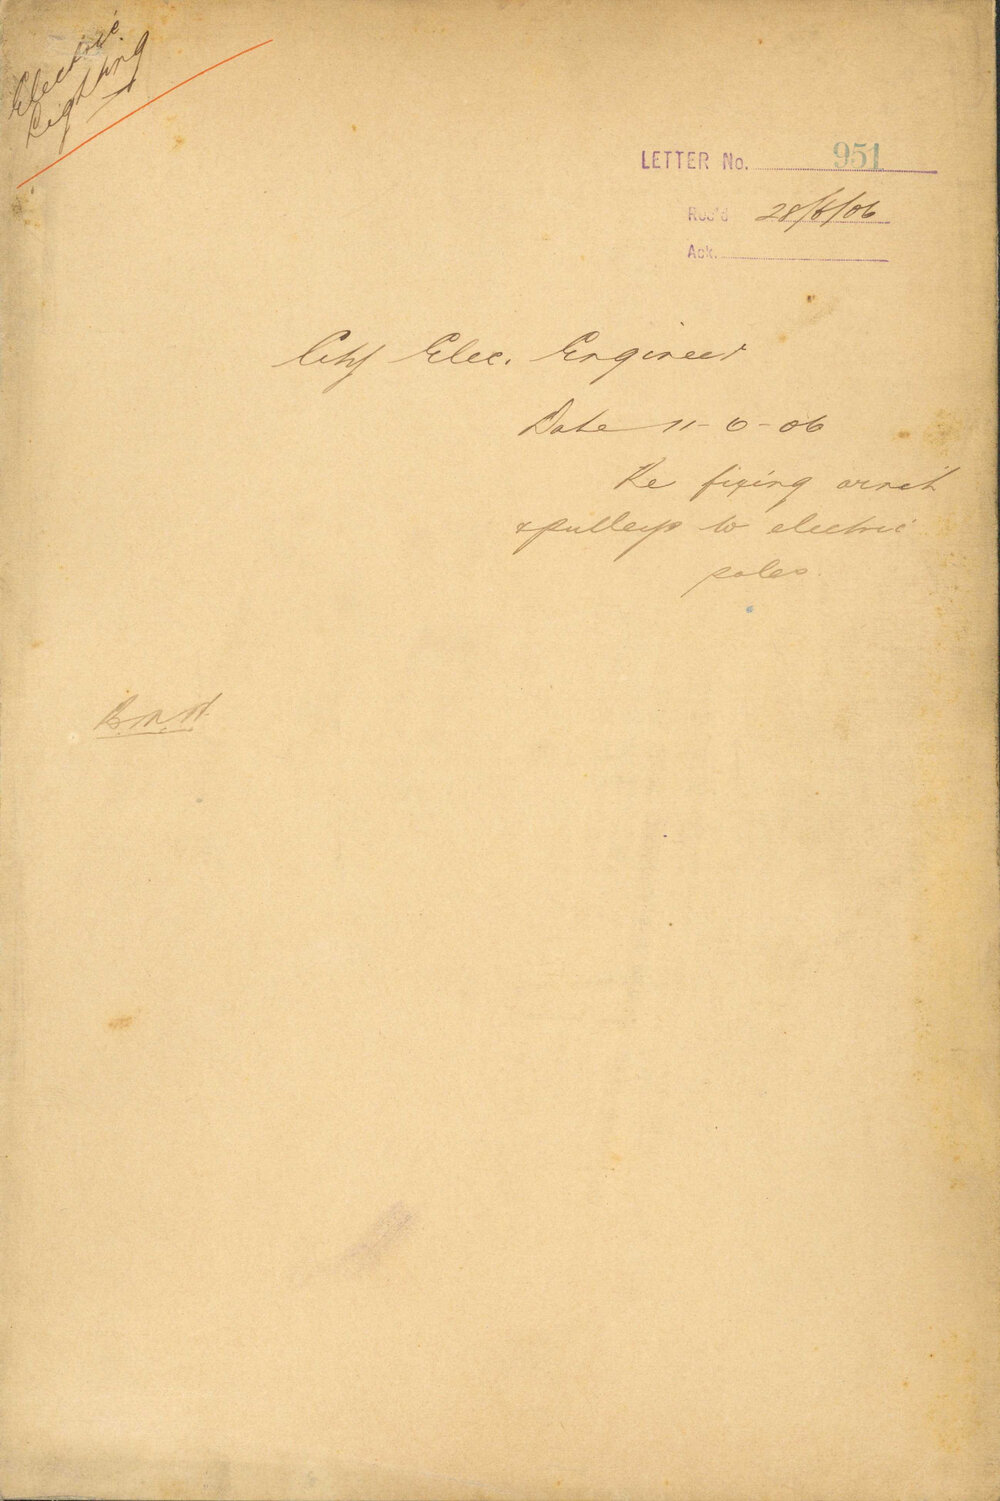 Electric
Lighting
LETTER No. 951
Rec'd 28/6/06
Ack.
City Elec. Engineer
Date 11-6-06
Re fixing
& pulleys to electric
poles.